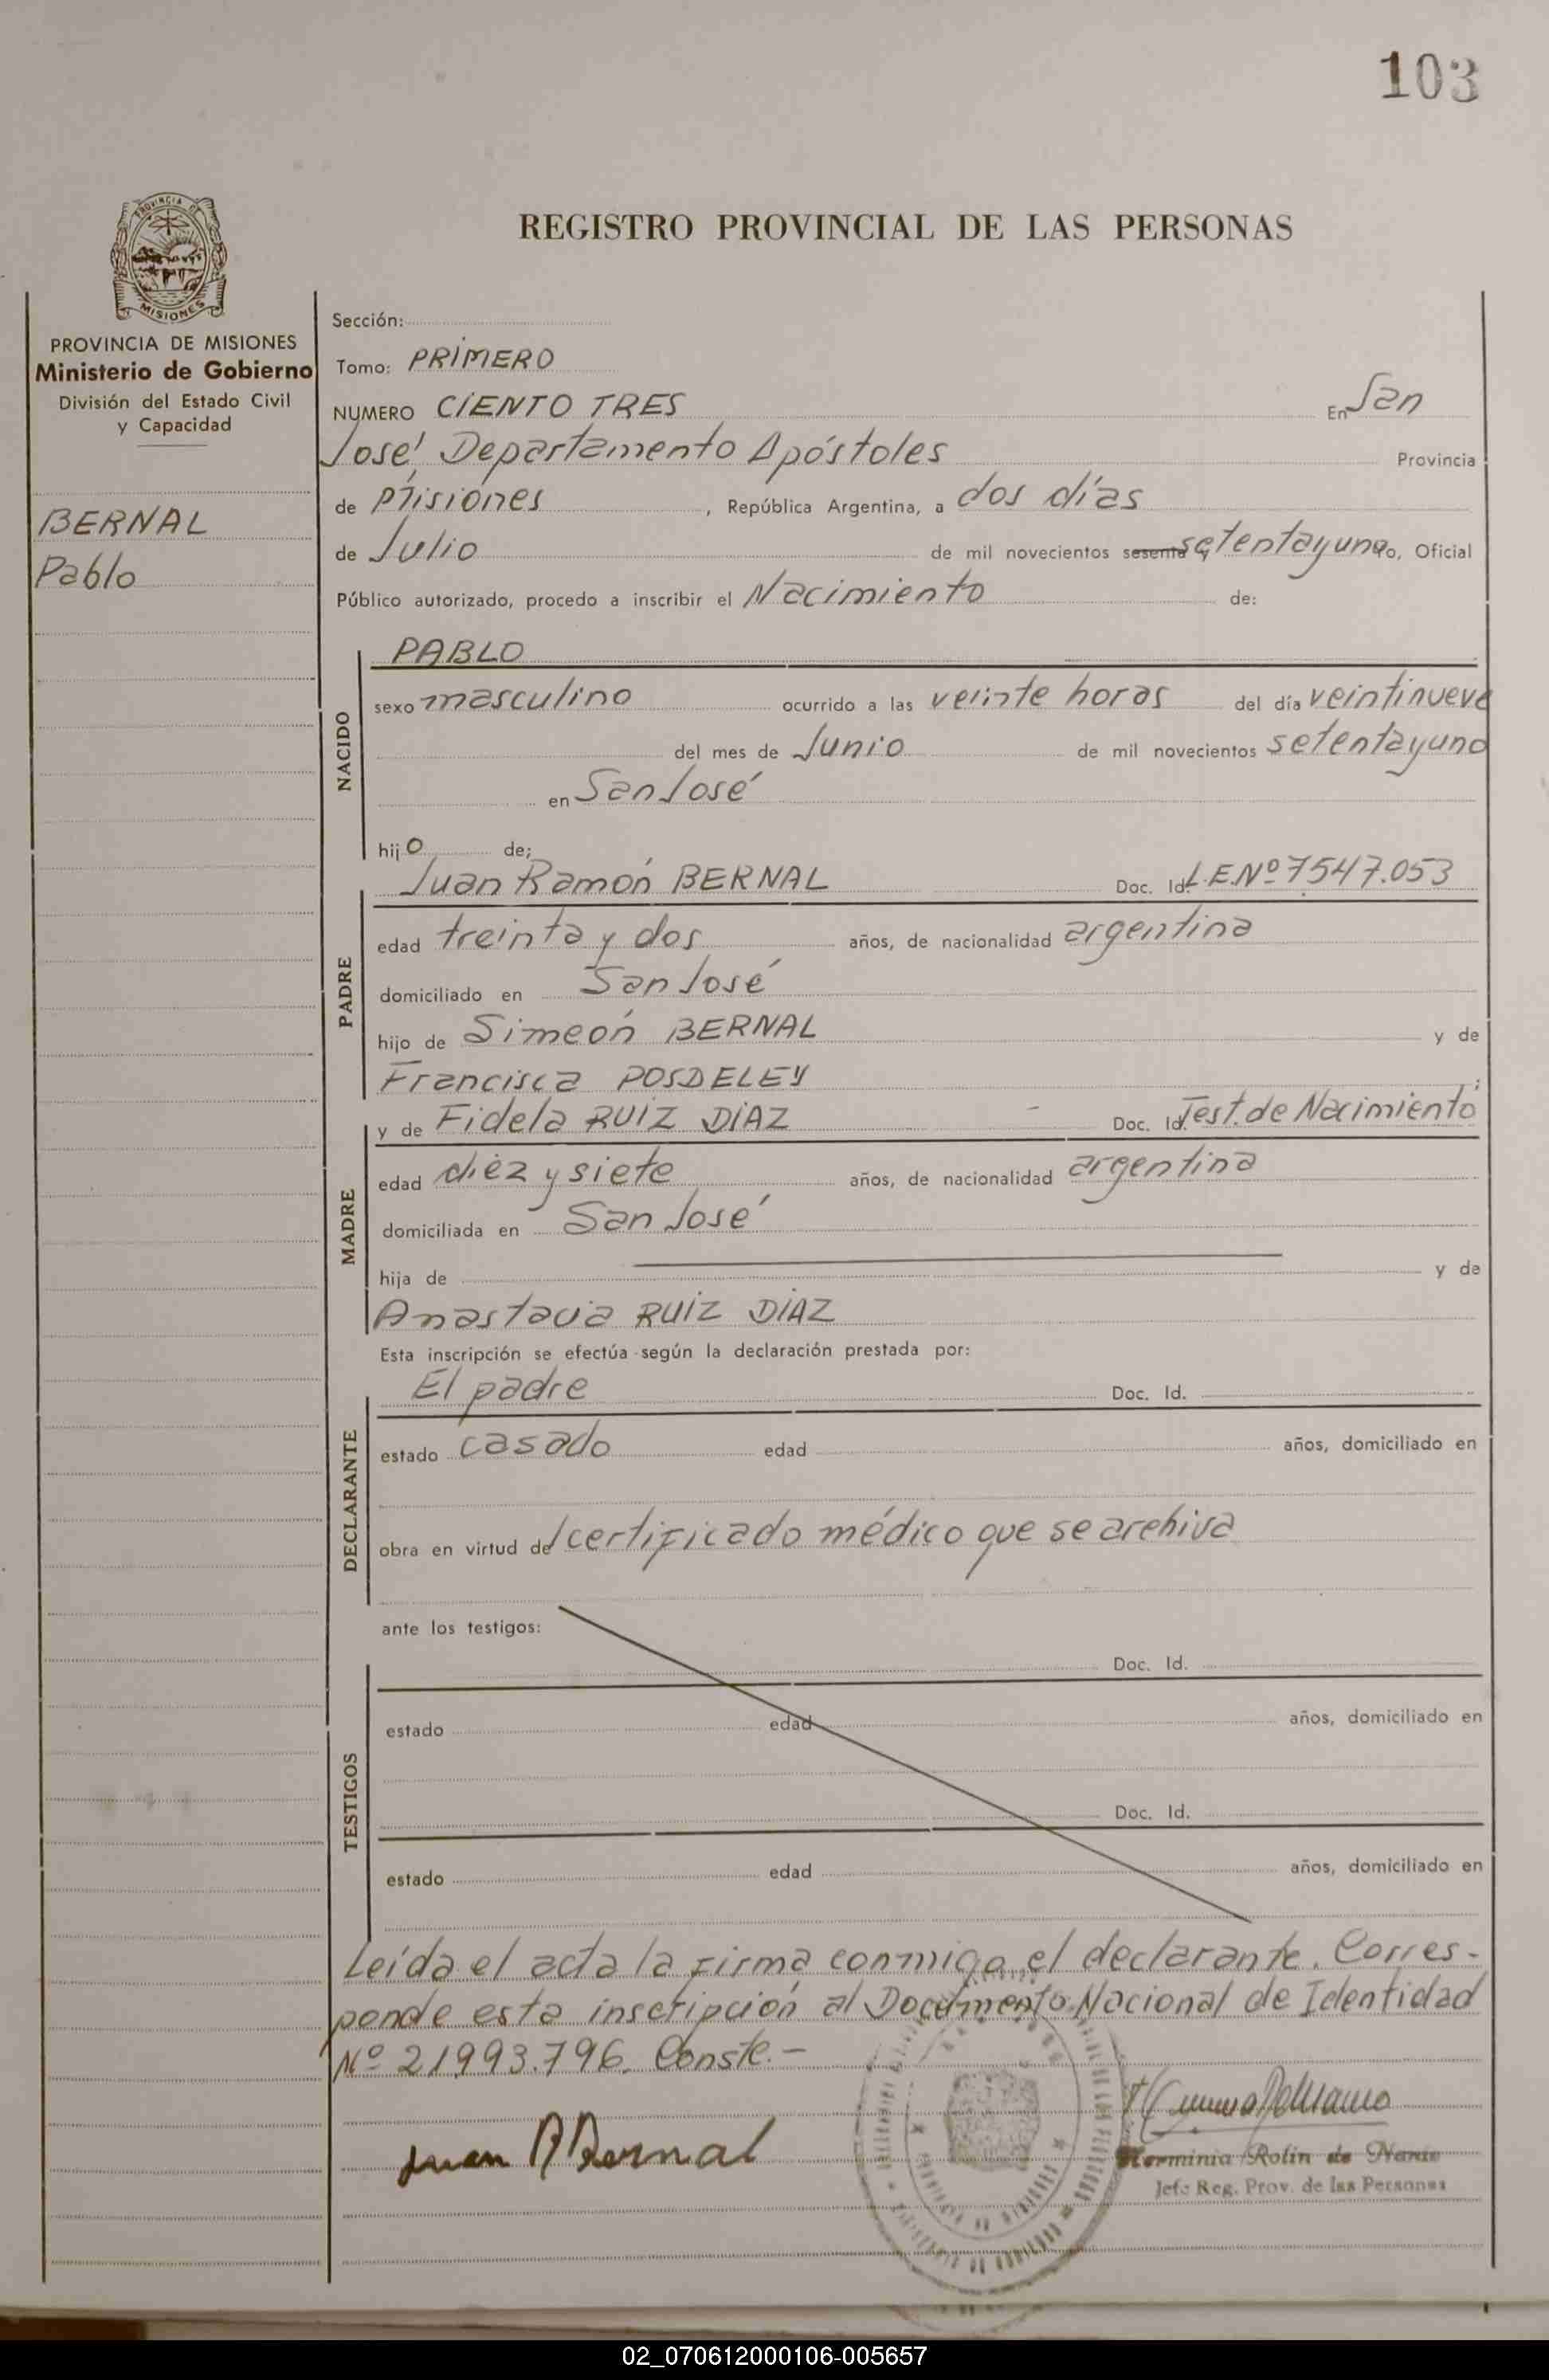 103
REGISTRO PROVINCIAL DE LAS PERSONAS
MISIONES
PROVINCIA DE MISIONES
Ministerio de Gobierno
División del Estado Civil
y Capacidad
BERNAL
Pablo
Sección:
Tomo: PRIMERO
NUMERO CIENTO TRES En San
José, Departamento Apóstoles Provincia
de Misiones, República Argentina, a dos días
de Julio de mil novecientos sesenta y setentayuno, Oficial
Público autorizado, procedo a inscribir el Nacimiento de:
NACIDO
PABLO
sexo masculino ocurrido a las veinte horas del día veintinueve
del mes de Junio de mil novecientos setentayuno
en San José
hijo de;
PADRE
Juan Ramón BERNAL Doc. Id. L.E.Nº 7547.053
edad treinta y dos años, de nacionalidad argentina
domiciliado en San José
hijo de Simeón BERNAL y de
Francisca POSDELEY;
MADRE
y de Fidela RUIZ DIAZ Doc. Id. Test. de Nacimiento
edad diez y siete años, de nacionalidad argentina
domiciliada en San José
hija de y de
Anastacia RUIZ DIAZ
Esta inscripción se efectúa según la declaración prestada por:
DECLARANTE
El padre Doc. Id.
estado casado edad años, domiciliado en
obra en virtud del certificado médico que se archiva
ante los testigos:
TESTIGOS
Doc. Id.
estado edad años, domiciliado en
Doc. Id.
estado edad años, domiciliado en
Leída el acta la firma conmigo el declarante. Corres-
ponde esta inscripción al Documento Nacional de Identidad
Nº 21993.796. Conste.-
Juan R Bernal
Herminia Rolin de
Jefe Reg. Prov. de las Personas
02_070612000106-005657